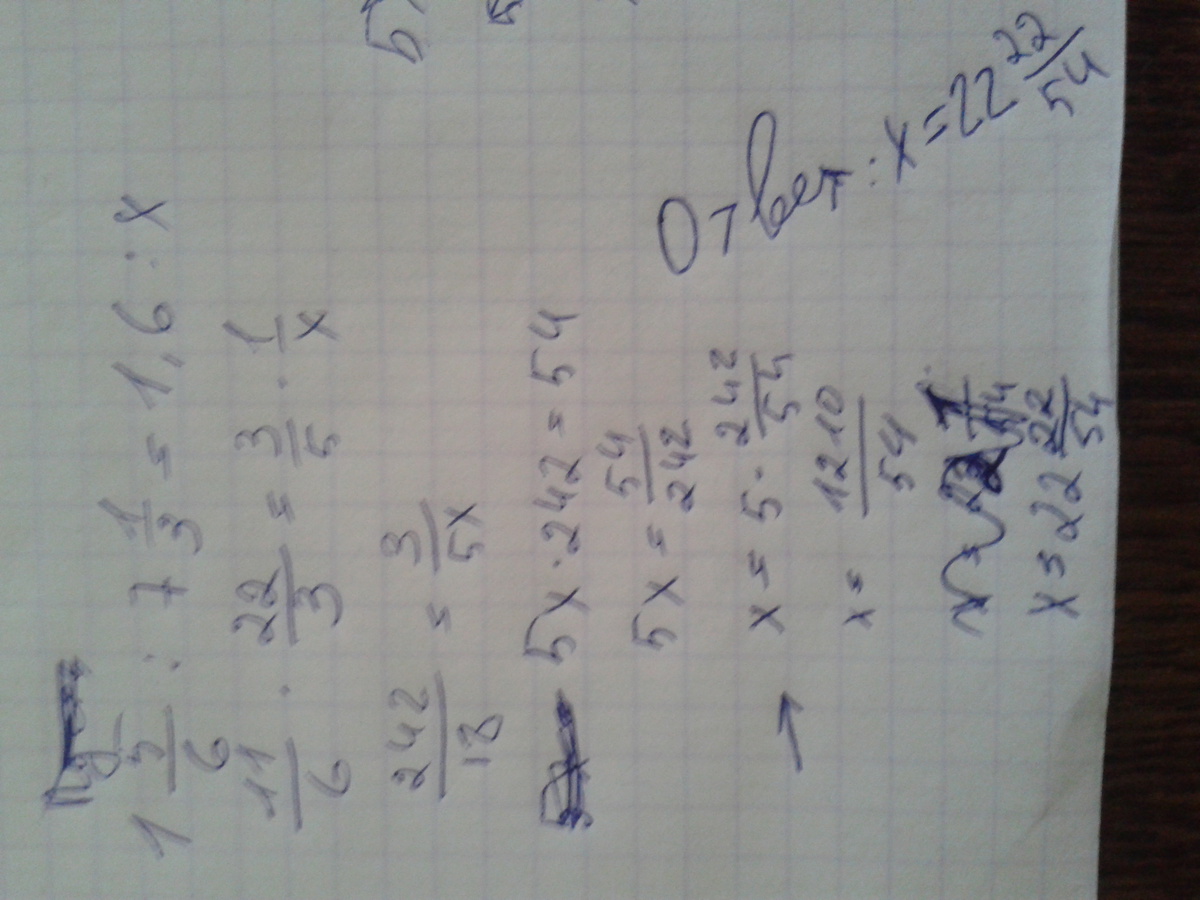 1 5/6 : 7 1/3 = 1,6 : x
11/6 · 22/3 = 3/5 · 1/x
242/18 = 3/5x
5x · 242 = 54
5x = 54/242
→ x = 5 · 242/54
x = 1210/54
x = 22 22/54
Ответ: x = 22 22/54